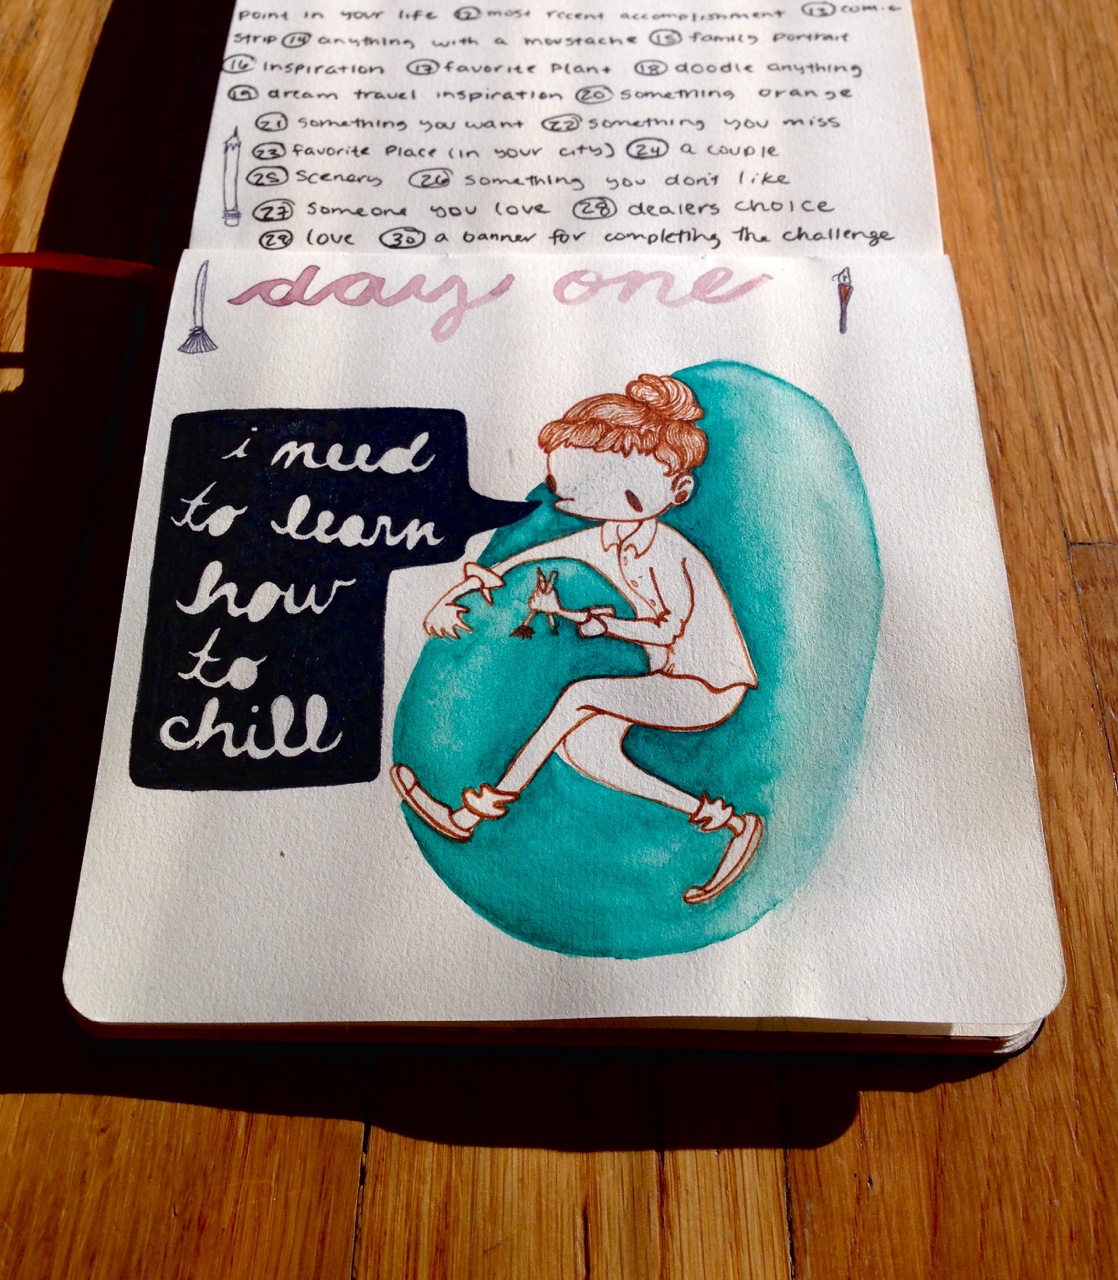 point in your life ⑫ most recent accomplishment ⑬ comic
strip ⑭ anything with a moustache ⑮ family portrait
⑯ inspiration ⑰ favorite plant ⑱ doodle anything
⑲ dream travel inspiration ⑳ something orange
㉑ something you want ㉒ something you miss
㉓ favorite place (in your city) ㉔ a couple
㉕ scenery ㉖ something you don't like
㉗ someone you love ㉘ dealers choice
㉙ love ㉚ a banner for completing the challenge
day one
i need
to learn
how
to
chill